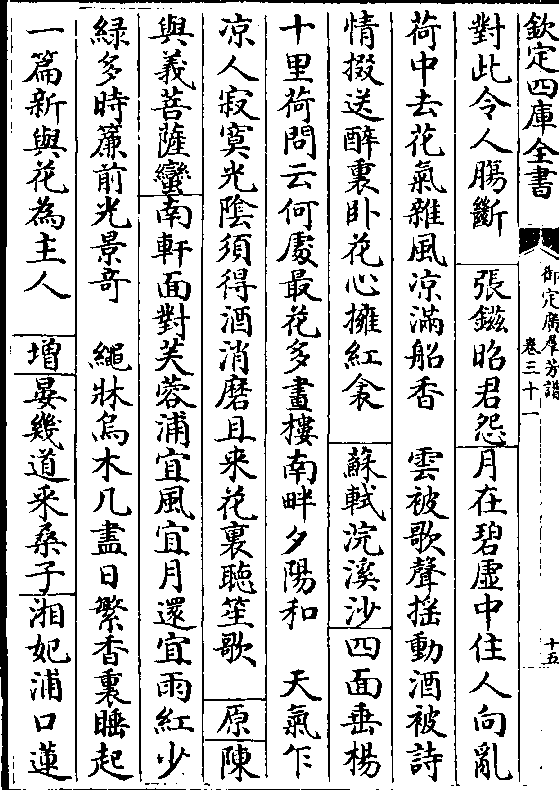 欽定四庫全書
御定廣羣芳譜
卷三十一
十五
對此令人腸斷　張鎡昭君怨月在碧虚中住人向亂
荷中去花氣雜風凉滿船香　雲被歌聲揺動酒被詩
情掇送醉裏卧花心擁紅衾　蘇軾浣溪沙四面垂楊
十里荷問云何處最花多畫樓南畔夕陽和　天氣乍
凉人寂寞光陰須得酒消磨且来花裏聽笙歌　原陳
與義菩薩蠻南軒面對芙蓉浦宜風宜月還宜雨紅少
緑多時簾前光景竒　繩牀烏木几盡日繁香裏睡起
一篇新與花為主人　增晏幾道采桑子湘妃浦口蓮